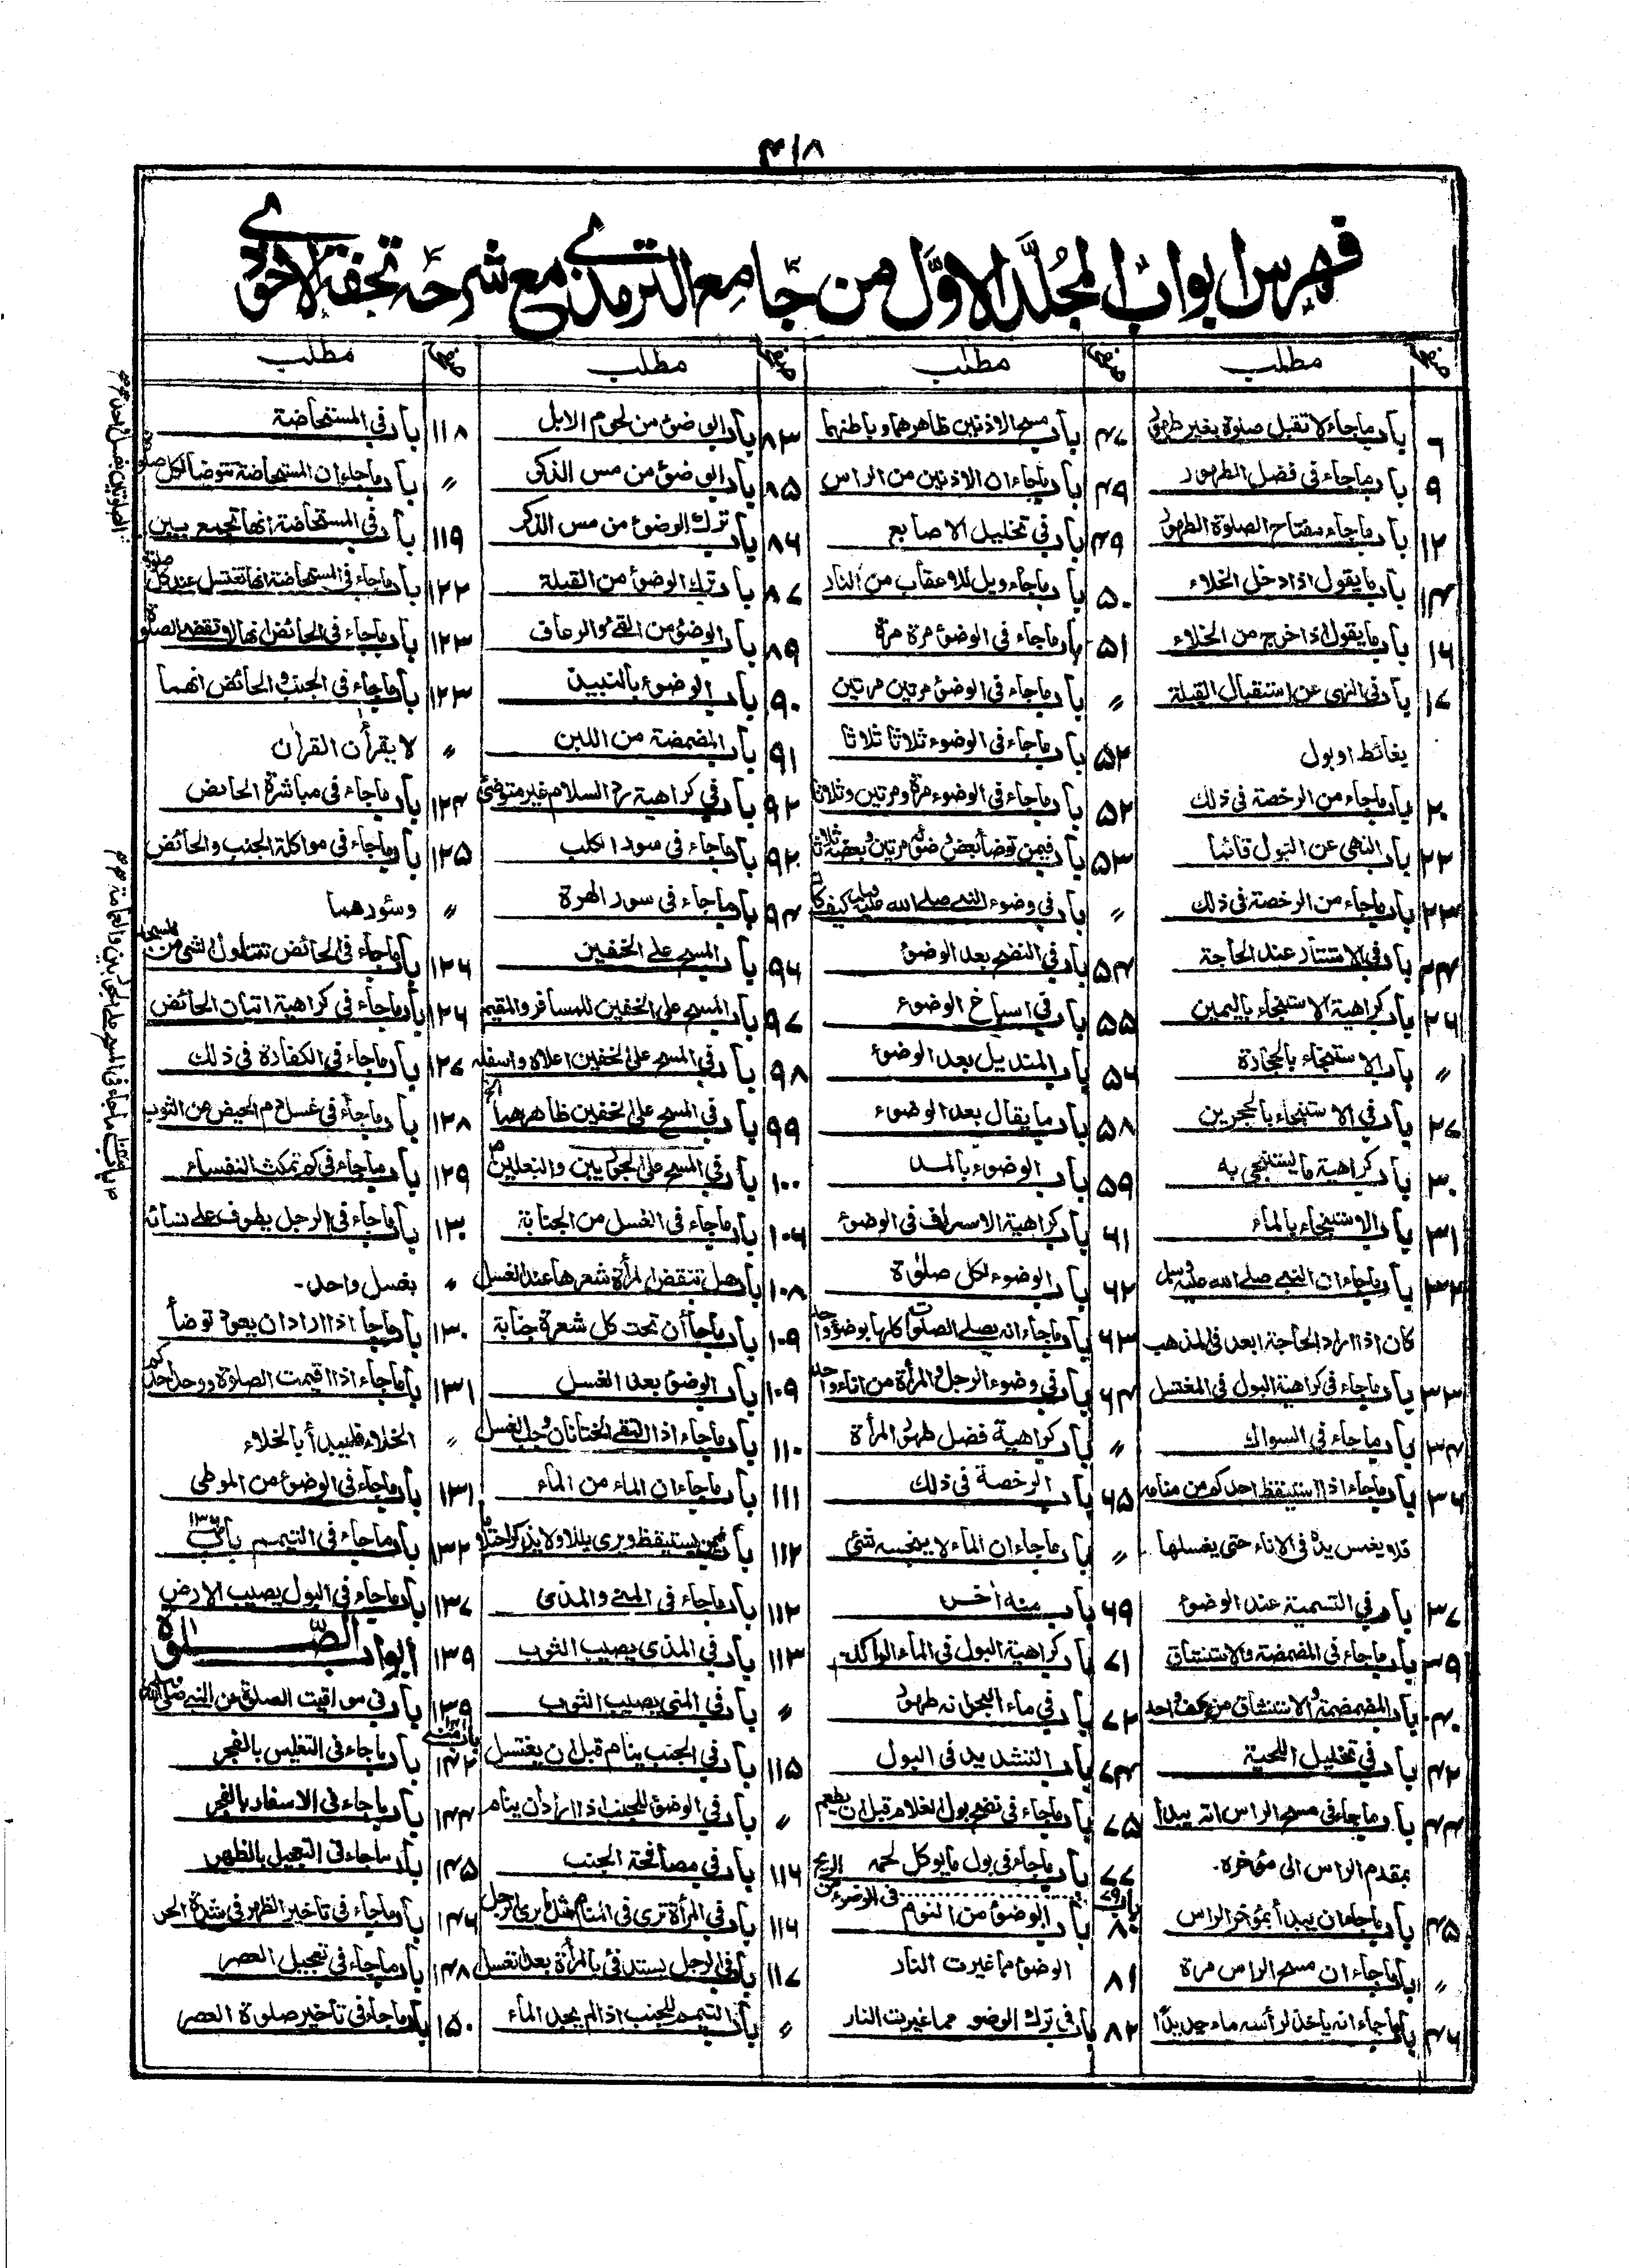 ٤١٨
فهرس ابواب المجلد الاول من جامع الترمذي مع شرحه تحفة الاحوذي
صفحه مطلب
٦ باب ماجاء لا تقبل صلوة بغير طهور
٩ باب ماجاء فى فضل الطهور
١٢ باب ماجاء مفتاح الصلوة الطهور
١٤ باب ما يقول اذا دخل الخلاء
١٦ باب ما يقول اذا خرج من الخلاء
١٧ باب فى النهى عن استقبال القبلة
بغائط او بول
٢٠ باب ماجاء من الرخصة فى ذلك
٢٢ باب النهى عن البول قائما
٢٣ باب ماجاء من الرخصة فى ذلك
٢٤ باب فى الاستتار عند الحاجة
٢٦ باب كراهية الاستنجاء باليمين
〃 باب الاستنجاء بالحجارة
٢٧ باب فى الاستنجاء بالحجرين
٣٠ باب كراهية ما يستنجى به
٣١ باب الاستنجاء بالماء
٣٢ باب ماجاء ان النبى صلى الله عليه وسلم
كان اذا اراد الحاجة ابعد فى المذهب
٣٣ باب ماجاء فى كراهية البول فى المغتسل
٣٤ باب ماجاء فى السواك
٣٦ باب ماجاء اذا استيقظ احدكم من منامه
فلا يغمس يده فى الاناء حتى يغسلها
٣٧ باب فى التسمية عند الوضوء
٣٩ باب ماجاء فى المضمضة والاستنشاق
٤٠ باب المضمضة والاستنشاق من كف واحد
٤٢ باب فى تخليل اللحية
٤٤ باب ماجاء فى مسح الراس انه يبدأ
بمقدم الراس الى مؤخره۔
٤٥ باب ماجاء ان يبدأ بمؤخر الراس
〃 باب ماجاء ان مسح الراس مرة
٤٦ باب ماجاء انه ياخذ لرأسه ماء جديدًا
صفحه مطلب
٤٧ باب مسح الاذنين ظاهرهما وباطنهما
٤٩ باب ماجاء ان الاذنين من الراس
٤٩ باب فى تخليل الاصابع
٥٠ باب ماجاء ويل للاعقاب من النار
٥١ باب ماجاء فى الوضوء مرة مرة
〃 باب ماجاء فى الوضوء مرتين مرتين
٥٢ باب ماجاء فى الوضوء ثلاثا ثلاثا
٥٢ باب ماجاء فى الوضوء مرة ومرتين وثلاثا
٥٣ باب فيمن توضأ بعض وضوئه مرتين وبعضه ثلاثا
〃 باب فى وضوء النبى صلى الله عليه وسلم كيف كان
٥٤ باب فى النضح بعد الوضوء
٥٥ باب فى اسباغ الوضوء
٥٦ باب المنديل بعد الوضوء
٥٨ باب ما يقال بعد الوضوء
٥٩ باب الوضوء بالمد
٦١ باب كراهية الاسراف فى الوضوء
٦٢ باب الوضوء لكل صلوة
٦٣ باب ماجاء انه يصلى الصلوات كلها بوضوء واحد
٦٤ باب فى وضوء الرجل والمرأة من اناء واحد
〃 باب كراهية فضل طهور المرأة
٦٥ باب الرخصة فى ذلك
〃 باب ماجاء ان الماء لا ينجسه شئ
٦٩ باب منه اخر
٧١ باب كراهية البول فى الماء الراكد
٧٢ باب فى ماء البحر انه طهور
٧٤ باب التشديد فى البول
٧٥ باب ماجاء فى نضح بول الغلام قبل ان يطعم
٧٧ باب ماجاء فى بول ما يوكل لحمه
باب ٧٩ فى الوضوء من الريح
٨٠ باب الوضوء من النوم
٨١ الوضوء مما غيرت النار
٨٢ باب فى ترك الوضو مما غيرت النار
صفحه مطلب
٨٣ باب الوضوء من لحوم الابل
٨٥ باب الوضوء من مس الذكر
٨٦ باب ترك الوضوء من مس الذكر
٨٧ باب ترك الوضوء من القبلة
٨٩ باب الوضوء من القئ والرعاف
٩٠ باب الوضوء بالنبيذ
٩١ باب المضمضة من اللبن
٩٢ باب فى كراهية رد السلام غير متوضئ
٩٢ باب ماجاء فى سور الكلب
٩٤ باب ماجاء فى سور الهرة
٩٦ باب المسح على الخفين
٩٧ باب المسح على الخفين للمسافر والمقيم
٩٨ باب فى المسح على الخفين اعلاه واسفله
٩٩ باب فى المسح على الخفين ظاهرهما
١٠٠ باب فى المسح على الجوربين والنعلين
١٠٦ باب ماجاء فى الغسل من الجنابة
١٠٨ باب هل تنقض المرأة شعرها عند الغسل
١٠٩ باب ماجاء أن تحت كل شعرة جنابة
١٠٩ باب الوضوء بعد الغسل
١١٠ باب ماجاء اذا التقى الختانان وجب الغسل
١١١ باب ماجاء ان الماء من الماء
١١٢ باب فيمن يستيقظ ويرى بللا ولا يذكر احتلاما
١١٢ باب ماجاء فى المنى والمذى
١١٣ باب فى المذى يصيب الثوب
〃 باب فى المنى يصيب الثوب
١١٥ باب فى الجنب ينام قبل ان يغتسل
〃 باب فى الوضوء للجنب اذا اراد أن ينام
١١٦ باب فى مصافحة الجنب
١١٦ باب فى المرأة ترى فى المنام مثل ما يرى الرجل
١١٧ باب فى الرجل يستدفئ بالمرأة بعد الغسل
〃 باب التيمم للجنب اذا لم يجد الماء
صفحه مطلب
١١٨ باب فى المستحاضة
〃 باب ماجاء ان المستحاضة تتوضأ لكل صلوة
١١٩ باب فى المستحاضة انها تجمع بين
الصلوتين بغسل واحد
١٢٢ باب ماجاء فى المستحاضة انها تغتسل عند كل صلوة
١٢٣ باب ماجاء فى الحائض انها لا تقضى الصلوة
١٢٣ باب ماجاء فى الجنب والحائض انهما
〃 لا يقرأن القرأن
١٢٤ باب ماجاء فى مباشرة الحائض
١٢٥ باب ماجاء فى مواكلة الجنب والحائض
〃 وسورهما
١٢٦ باب ماجاء فى الحائض تتناول الشئ من المسجد
١٢٦ باب ماجاء فى كراهية اتيان الحائض
١٢٧ باب ماجاء فى الكفارة فى ذلك
١٢٨ باب ماجاء فى غسل دم الحيض من الثوب
١٢٩ باب ماجاء فى كم تمكث النفساء
١٣٠ باب ماجاء فى الرجل يطوف على نسائه
〃 بغسل واحد۔
١٣٠ باب ماجاء اذا اراد ان يعود توضأ
١٣١ باب ماجاء اذا اقيمت الصلوة ووجد احدكم
〃 الخلاء فليبدأ بالخلاء
١٣١ باب ماجاء فى الوضوء من الموطى
١٣٢ باب ماجاء فى التيمم باب ١٣٦
١٣٧ باب ماجاء فى البول يصيب الارض
١٣٩ ابواب الصلوة
١٣٩ باب فى مواقيت الصلوة عن النبى صلى الله عليه وسلم
١٤٢ باب ماجاء فى التغليس بالفجر
١٤٤ باب ماجاء فى الاسفار بالفجر
١٤٥ باب ماجاء فى التعجيل بالظهر
١٤٦ باب ماجاء فى تاخير الظهر فى شدة الحر
١٤٨ باب ماجاء فى تعجيل العصر
١٥٠ باب ماجاء فى تأخير صلوة العصر
باب ماجاء فى المسح على الجوربين والعمامة